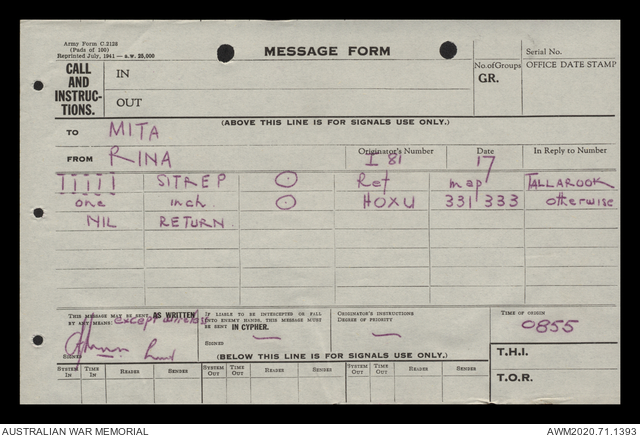 Army Form C.2128
(Pads of 100)
Reprinted July, 1941 — s.w. 25,000
MESSAGE FORM
Serial No.
CALL AND INSTRUCTIONS.
IN
OUT
No. of Groups GR.
OFFICE DATE STAMP
(ABOVE THIS LINE IS FOR SIGNALS USE ONLY.)
TO MITA
FROM RINA
Originator's Number I 81
Date 17
In Reply to Number
IIIII SITREP ⊙ Ref map TALLAROOK
one inch ⊙ HOXU 331 333 otherwise
NIL RETURN
THIS MESSAGE MAY BE SENT AS WRITTEN BY ANY MEANS. except wireless
SIGNED
IF LIABLE TO BE INTERCEPTED OR FALL INTO ENEMY HANDS, THIS MESSAGE MUST BE SENT IN CYPHER.
SIGNED —
ORIGINATOR'S INSTRUCTIONS
DEGREE OF PRIORITY
—
TIME OF ORIGIN
0855
T.H.I.
T.O.R.
(BELOW THIS LINE IS FOR SIGNALS USE ONLY.)
SYSTEM IN TIME IN READER SENDER SYSTEM OUT TIME OUT READER SENDER SYSTEM OUT TIME OUT READER SENDER
AUSTRALIAN WAR MEMORIAL
AWM2020.71.1393